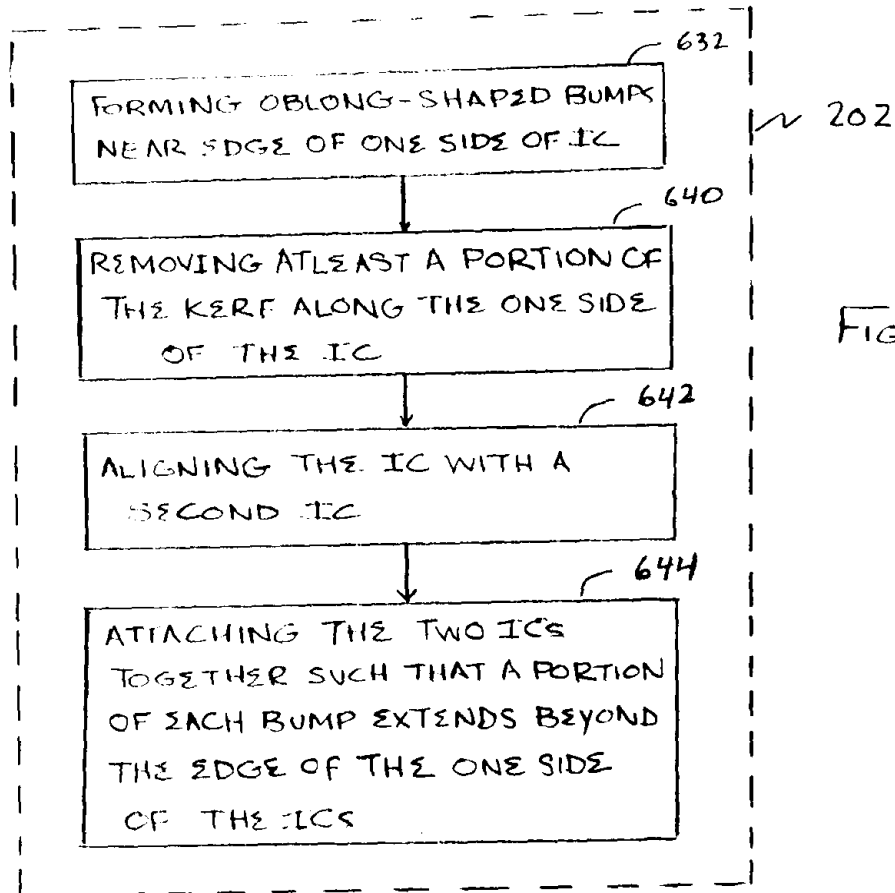 632
FORMING OBLONG-SHAPED BUMPS
NEAR EDGE OF ONE SIDE OF IC
202
640
REMOVING ATLEAST A PORTION OF
THE KERF ALONG THE ONE SIDE
OF THE IC
FIG
642
ALIGNING THE IC WITH A
SECOND IC
644
ATTACHING THE TWO ICs
TOGETHER SUCH THAT A PORTION
OF EACH BUMP EXTENDS BEYOND
THE EDGE OF THE ONE SIDE
OF THE ICs